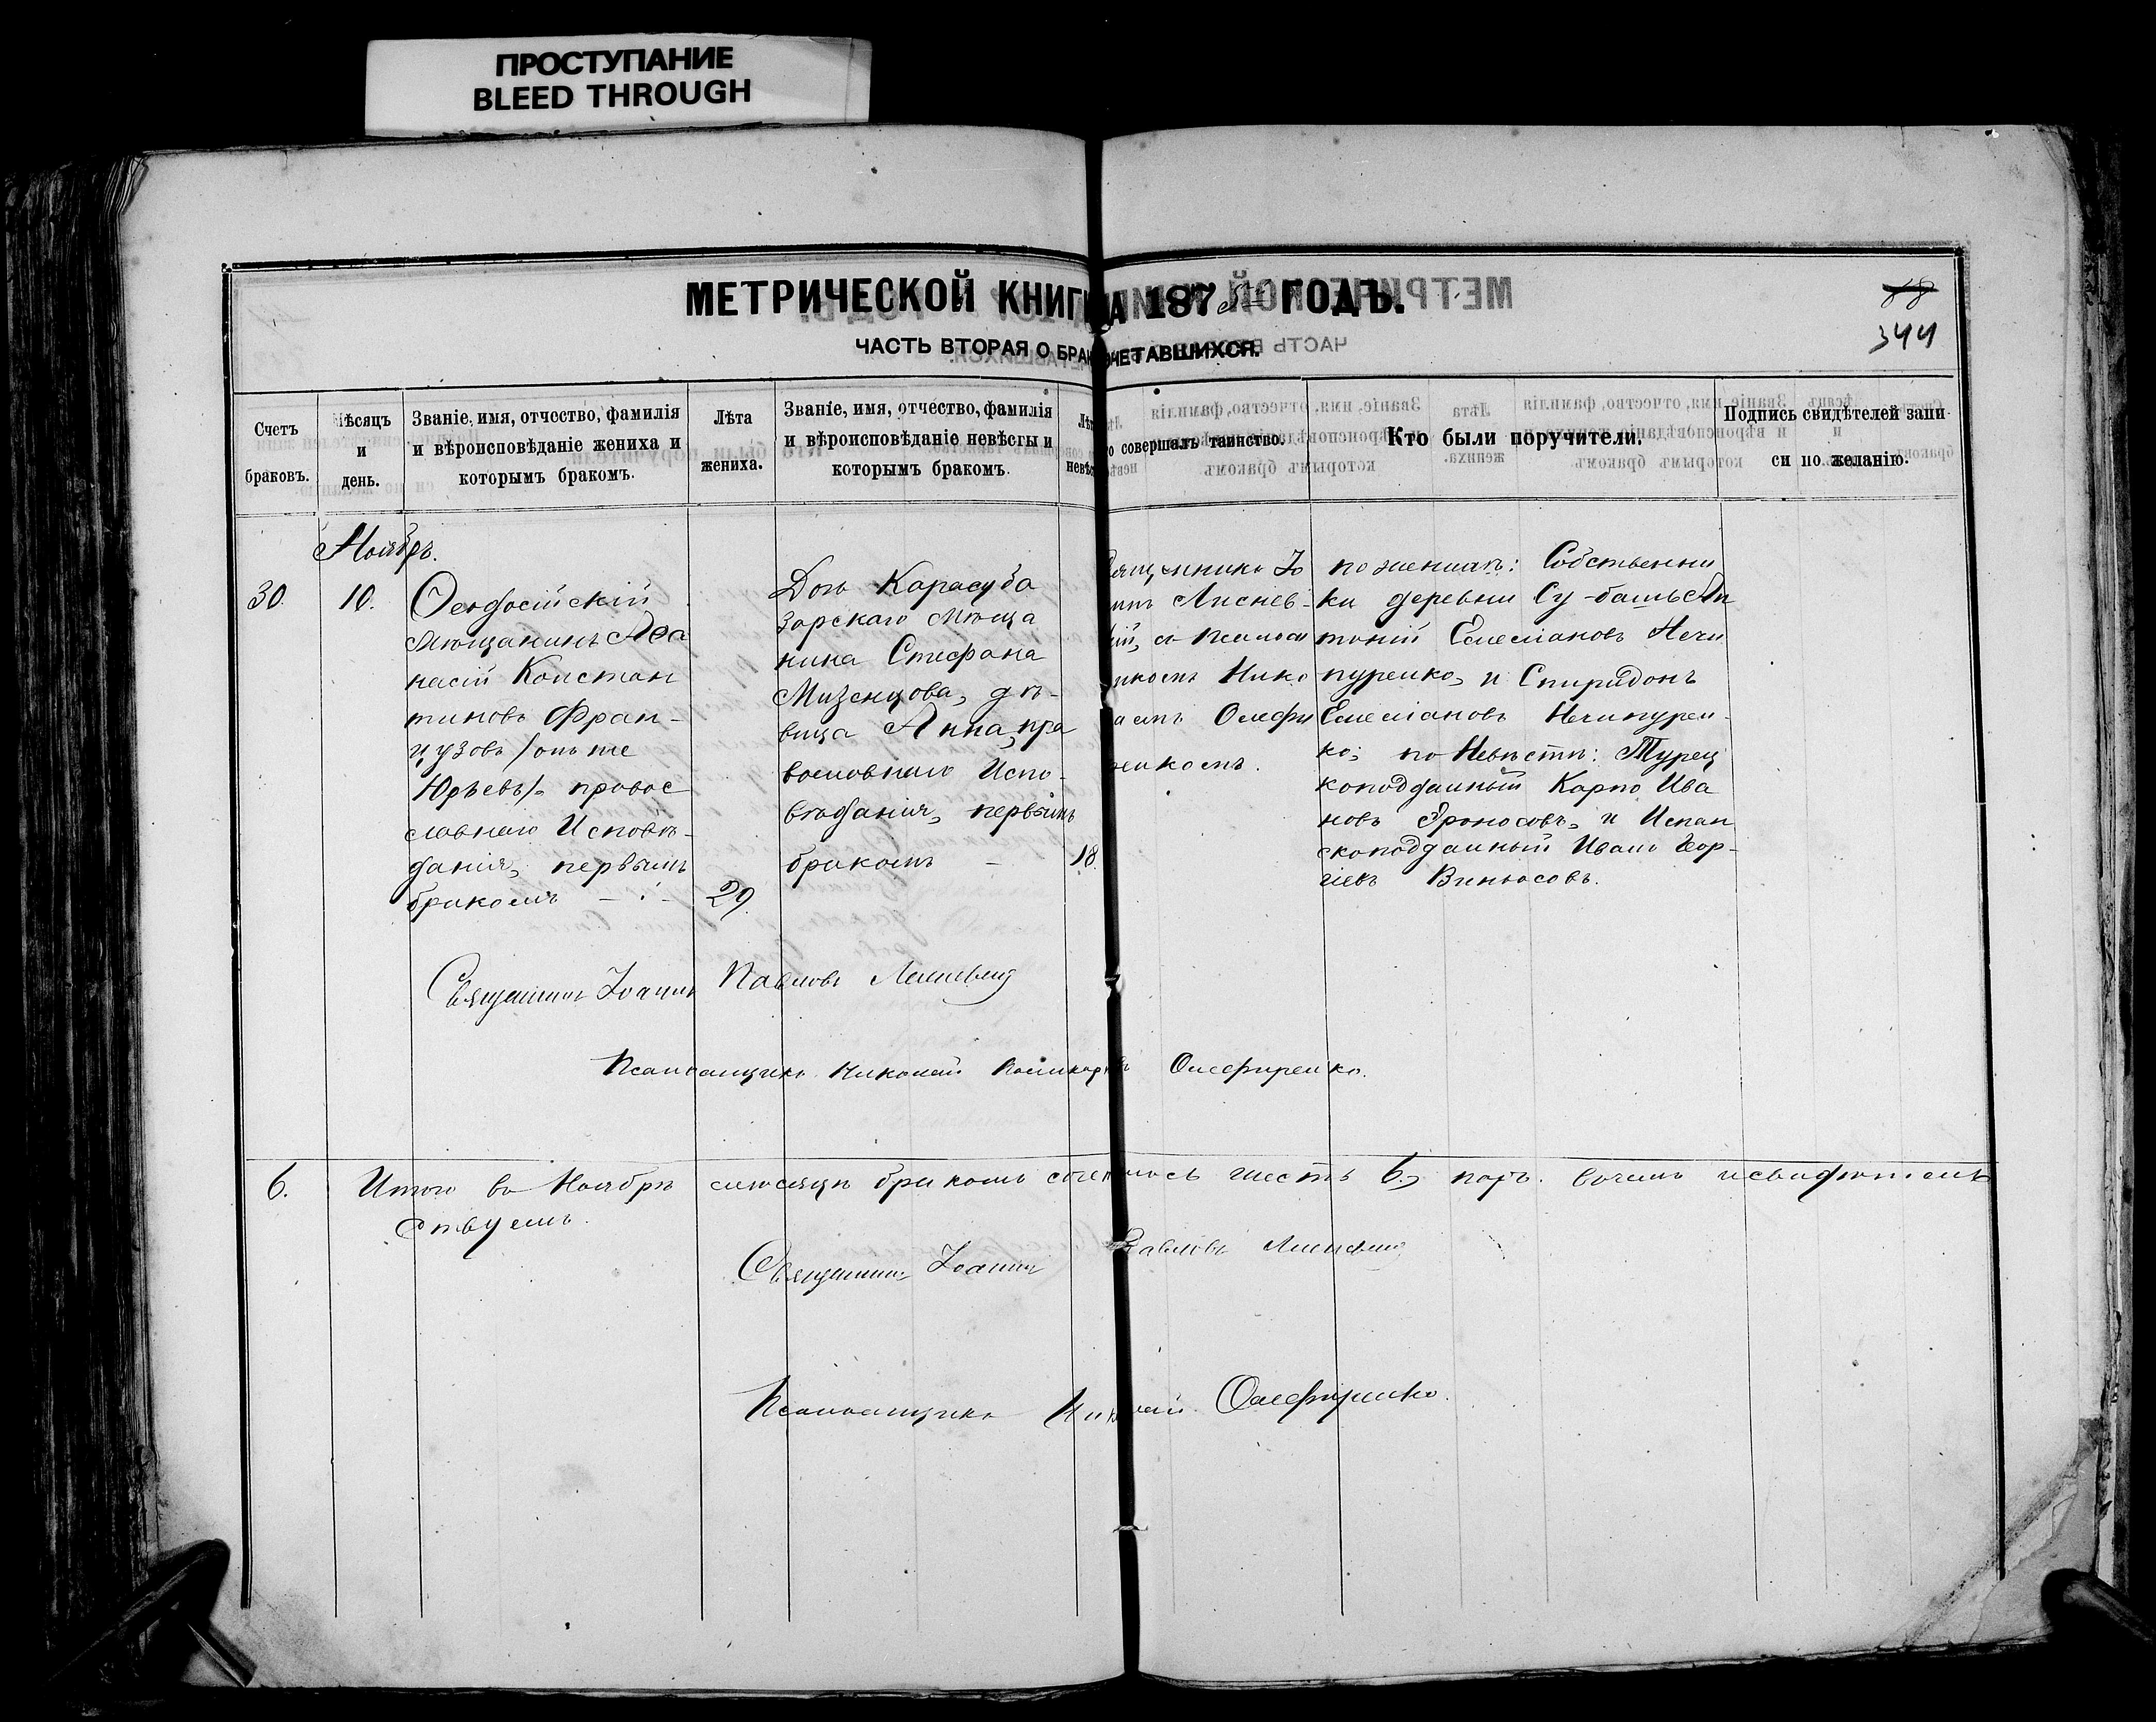 ПРОСТУПАНИЕ
BLEED THROUGH
МЕТРИЧЕСКОЙ КНИГИ НА 1875 ГОДЪ.
ЧАСТЬ ВТОРАЯ О БРАКОСОЧЕТАВШИХСЯ.
88
344
Счетъ браковъ.
Мѣсяцъ и день.
Званіе, имя, отчество, фамилія
и вѣроисповѣданіе жениха и
которымъ бракомъ.
Лѣта
жениха.
Званіе, имя, отчество, фамилія
и вѣроисповѣданіе невѣсты и
которымъ бракомъ.
Лѣт
невѣс
о совершалъ таинство.
Кто были поручители.
Подпись свидѣтелей запи
си по желанію.
Ноябрь.
30.
10.
Ѳеодосійскій
Мѣщанинъ Аѳа
насій Констан
тиновъ Фран-
цузовъ /онъ же
Юрьевъ/, правос
лавнаго Исповѣ-
данія, первымъ
бракомъ
29.
Дочь Карасуба
зарскаго Мѣща
нина Стефана
Мизенцова, дѣ-
вица Анна, пра
вославнаго Испо-
вѣданія, первымъ
бракомъ -
18.
вященникъ Іо
аннъ Лиснев-
кій, съ псалом
икомъ Нико
Олефи
ренкомъ.
по женихѣ: Собственни
ки деревни Су-башъ Ан
тоній Емеліановъ Нечи
пуренко, и Спиридонъ
Емеліановъ Нечипурен-
ко; по Невѣстѣ: Турец
коподданный Карпо Ива
новъ и Испан
скоподданный Иванъ Геор-
гіевъ Винюсовъ.
Священникъ Іоаннъ Павловъ Лисневскій
Псаломщикъ Николай Поликарповъ Олефиренко.
6. Итого въ Ноябрѣ мѣсяцѣ бракомъ сочеталось шесть 6, паръ. въ чемъ и свидѣтель
ствуемъ.
Священникъ Іоаннъ Павловъ Лисневскій
Псаломщикъ Николай Олефиренко.